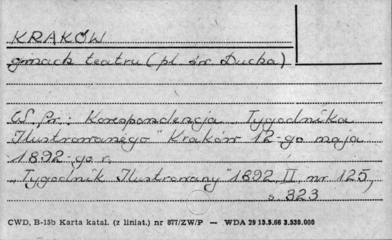 KRAKÓW
gmach teatru (pl. św. Ducha)
Gł. Pr.: Korespondencja „Tygodnika
Ilustrowanego" Kraków 12-go maja
1892-go r.
„Tygodnik Ilustrowany" 1892, II, nr 125,
s. 323
CWD, B-15b Karta katal. (z liniat.) nr 877/ZW/P — WDA 29 13.5.66 3.530.000